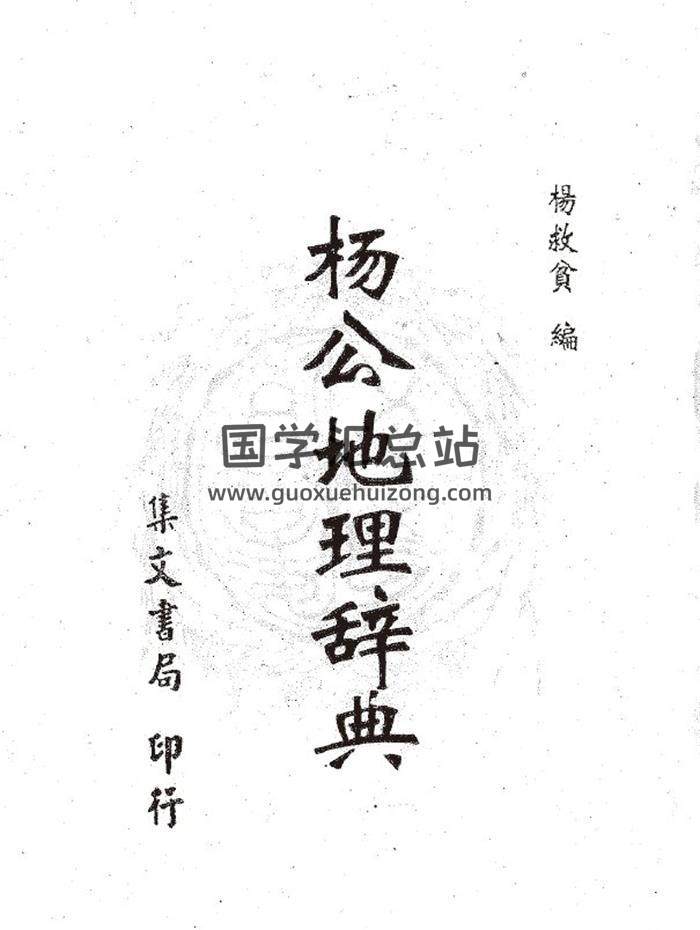 楊救貧 編
杨公地理辞典
集文書局 印行
国学汇总站
www.guoxuehuizong.com